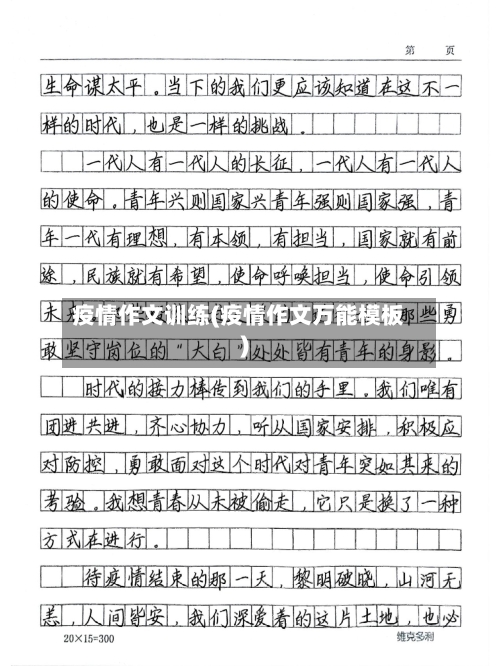 第 页
生命谋太平。当下的我们更应该知道在这不一
样的时代，也是一样的挑战。
一代人有一代人的长征，一代人有一代人
的使命。青年兴则国家兴青年强则国家强，青
年一代有理想，有本领，有担当，国家就有前
途，民族就有希望，使命呼唤担当，使命引领
未来
那些勇
疫情作文训练(疫情作文万能模板
)
敢坚守岗位的“大白”处处皆有青年的身影。
时代的接力棒传到我们的手里。我们唯有
团进共进，齐心协力，听从国家安排，积极应
对防控，勇敢面对这个时代对青年突如其来的
考验。我想青春从未被偷走，它只是换了一种
方式在进行。
待疫情结束的那一天，黎明破晓，山河无
恙，人间皆安，我们深爱着的这片土地，也必
20×15=300
维克多利